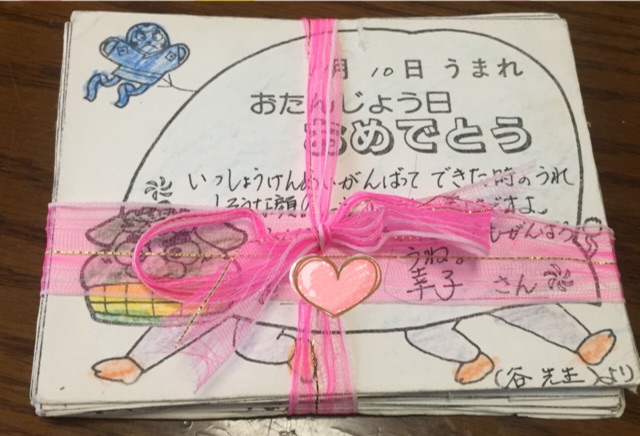 月10日うまれ
おたんじょう日
おめでとう
いっしょうけんめいがんばってできた時のうれ
しそうな顔の
ですよ。
もがんばろう
うね。
幸子さん
(谷先生より)